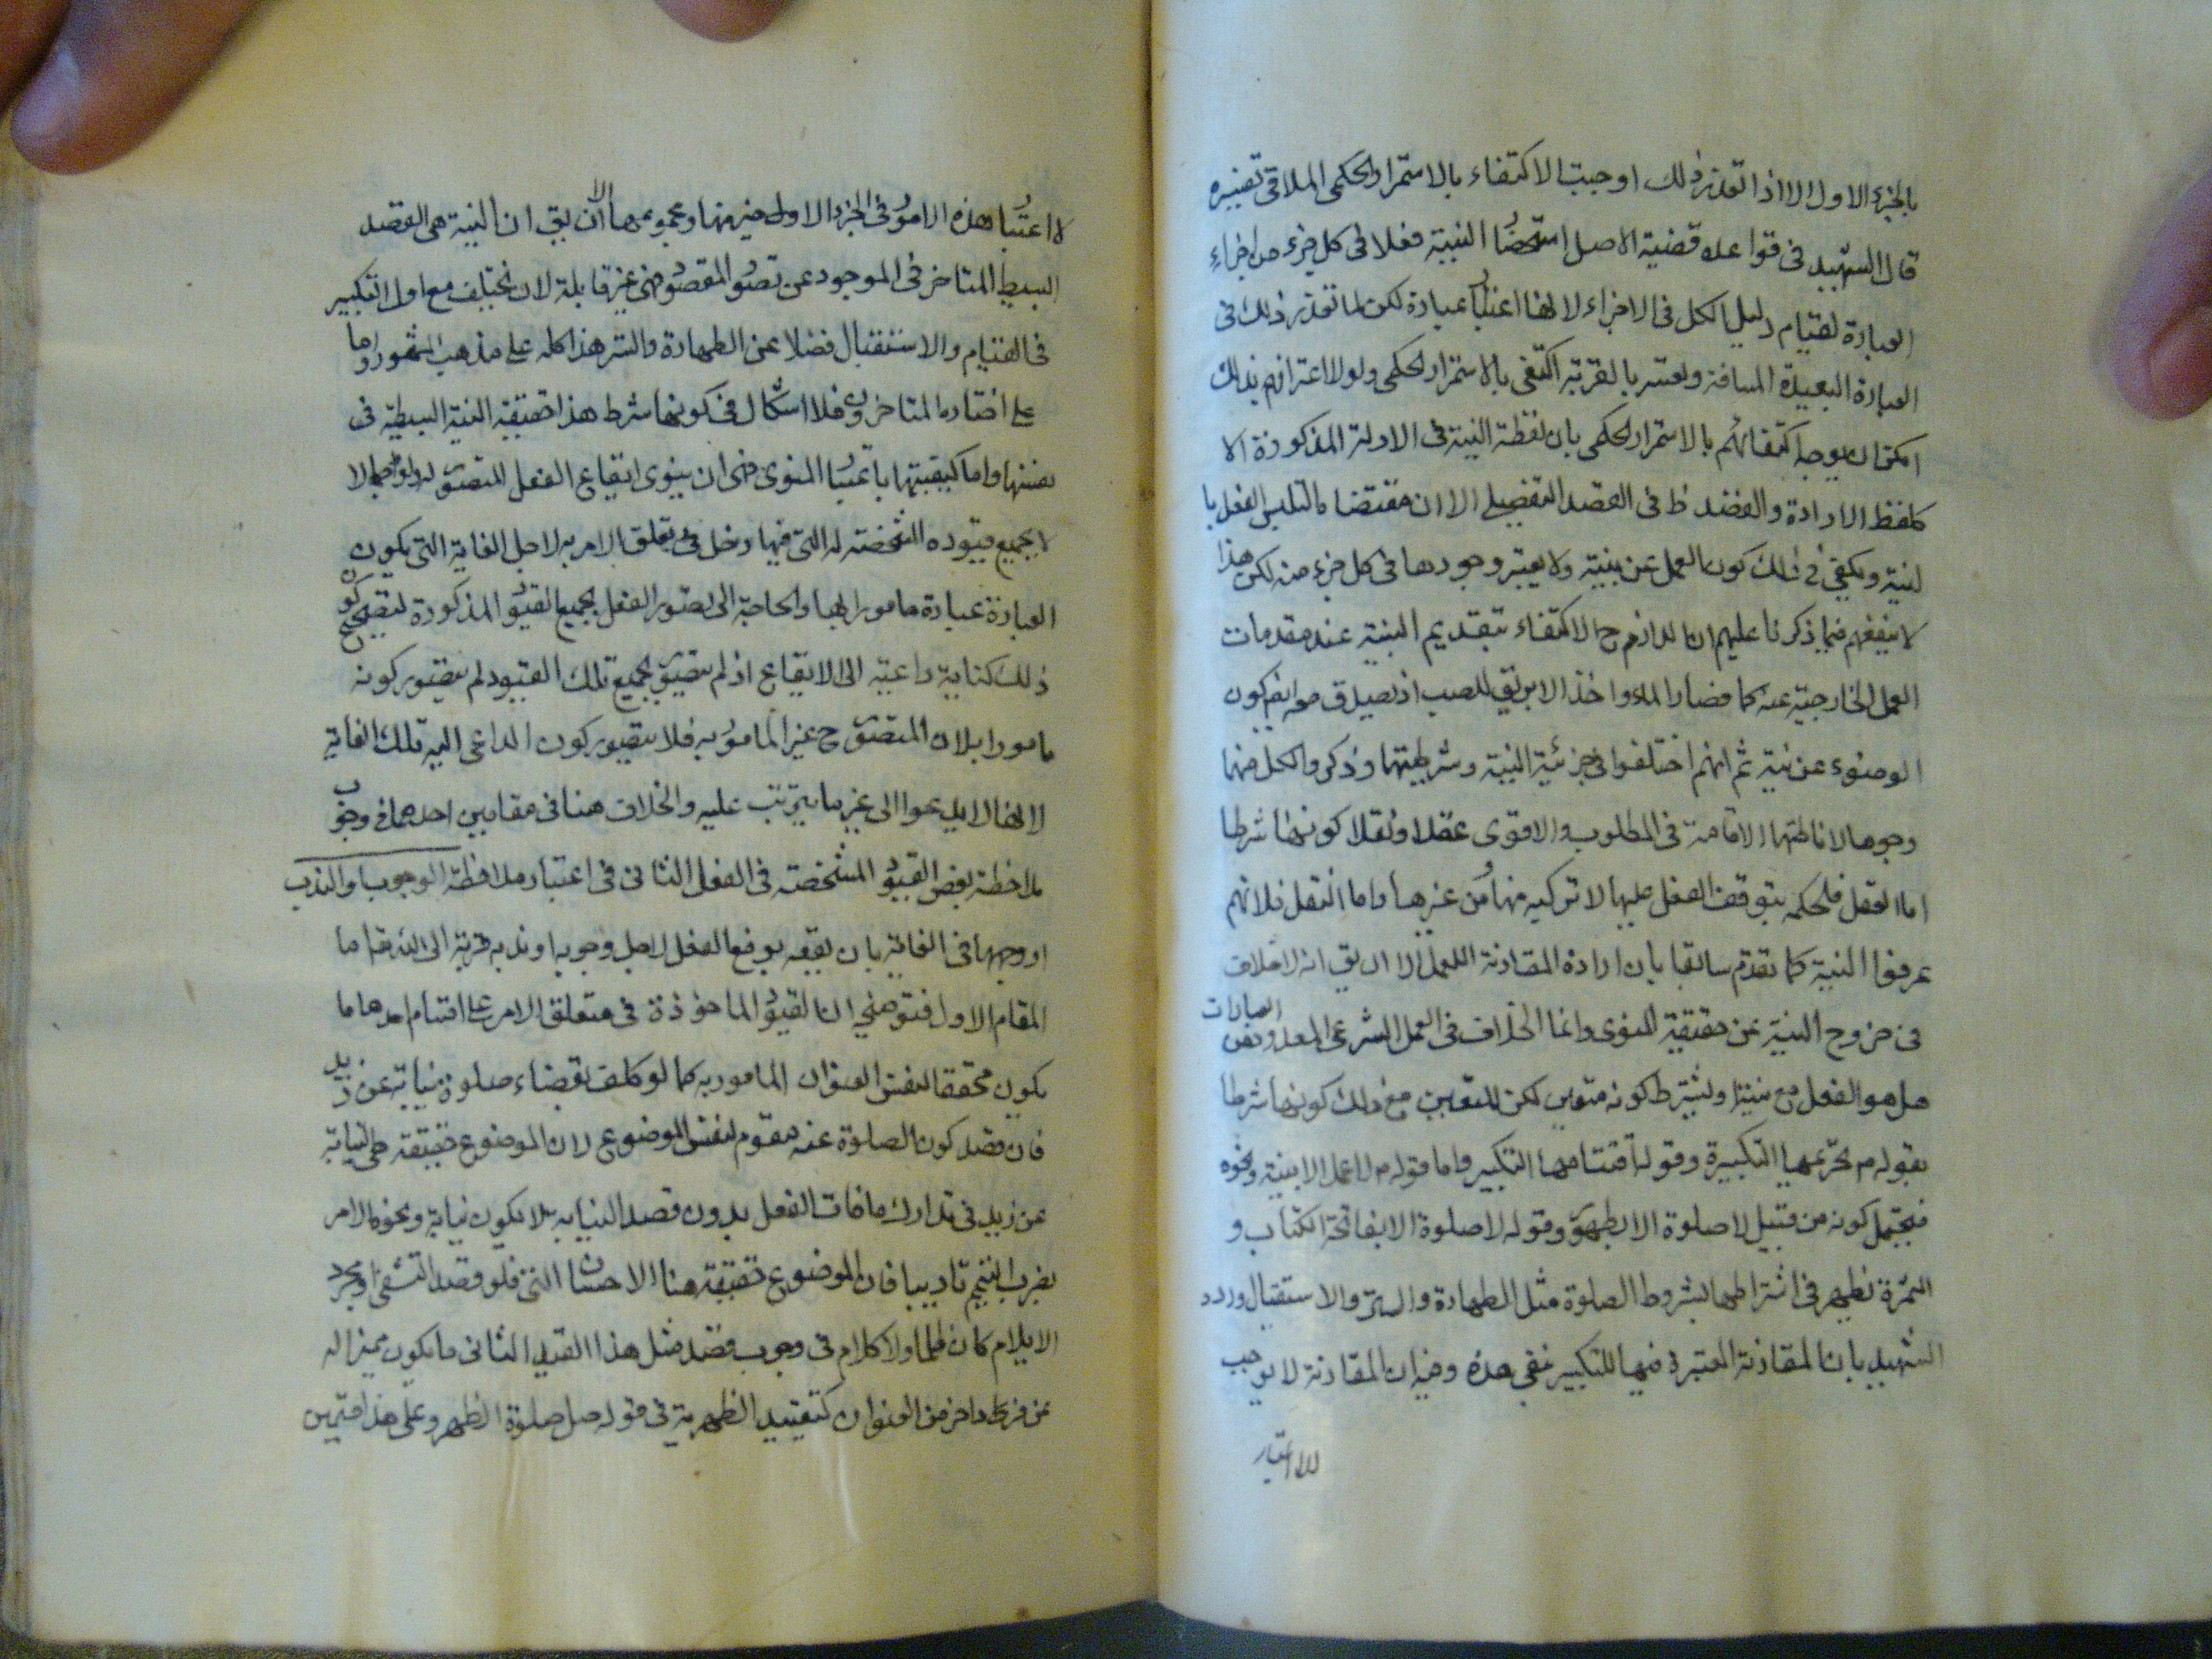 بالجزء الاول الا اذا تعذر ذلك اوجبت الاكتفاء بالاستمرار الحكمى الملاقى تفسيره
قال الشهيد فى قواعده قضية الاصل استحضا النية فعلا فى كل جزء من اجزاء
العبادة لقيام دليل الكل فى الاجزاء لانها عبادة لكن لما تعذر ذلك فى
العبادة البعيدة المسافة وتعسر بالقريبة اكتفى بالاستمرار الحكمى ولولا اعترافهم بذلك
امكن ان يوجه اكتفائهم بالاستمرار الحكمى بان لفظة النية فى الادلة المذكورة الا
كلفظ الارادة والقصد ظ فى القصد التفصيلى الا ان مقتضا التلبس الفعل با
لنية ويكفى فى ذلك كون العمل عن نية ولا يعتبر وجودها فى كل جزء منه لكن هذا
لا ينفعهم فيما ذكرنا عليهم ان اللازم ح الاكتفاء بتقديم النية عند مقدمات
العمل الخارجية عنه كاحضار الماء واخذ الابريق للصب اذ يصدق معه كون
الوضوء عن نية ثم انهم اختلفوا فى جزئية النية وشرطيتها وذكروا لكل منهما
وجوها لا فى المطلوب والاقوى عقلا ونقلا كونها شرطا
اما العقل فلحكمه بتوقف الفعل عليها لا تركبه منها ومن غيرها واما النقل فلانهم
عرفوا النية كما تقدم سابقا بان ارادة المقارنة للعمل الا ان يق انه لا خلاف
فى خروج النية عن حقيقة اللغوى وانما الخلاف فى العمل الشرعى من العبادات
هل هو الفعل مع نيته او بشرط كونه منوى لكن المتعين مع ذلك كونها شرطا
بقوله م تحريمها التكبيرة وقوله افتتاحها التكبير واما قوله م لا عمل الا بنية ونحوه
فيحتمل كونه من قبيل لا صلوة الا بطهور وقوله لا صلوة الا بفاتحة الكتاب و
الثمرة تظهر فى اشتراطها بشروط الصلوة مثل الطهارة والستر والاستقبال وردد
الشهيد بان المقارنة المعتبرة فيها للتكبير تنفى هذه وفيه ان المقارنة لا توجب
الاعتبار
لا اعتبا هذه الامو فى الجزء الاول منها الا ان يق ان النية هى القصد
البسيط المتاخر فى الموجود عن تصو المقصو فهى غير قابلة لان تختلف مع اول التكبير
فى القيام والاستقبال فضلا عن الطهارة والستر هذا كله على مذهب المشهور واما
على اختاره المتاخرون فلا اشكال فى كونها شرط هذا حقيقة النية البسيطة فى
نفسها واما كيفيتها باعتبا المنوى فهى ان ينوى ايقاع الفعل المتصور
لا بجميع قيوده المشخصة له التى فيها دخل فى تعلق الامر به لاجل الغاية التى يكون
العبادة عبادة مامورا بها والحاجة الى تصور الفعل بجميع القيو المذكورة ليصح كون
ذلك داعية الى الايقاع اذ لم يتصور بجميع تلك القيود لم يتصور كونه
مامورا بل المتصور ح غير المامو به فلا يتصور كون الداعى اليه تلك الغاية
لانها لا يدعوا الى غير ما يترتب عليه والخلاف هنا فى مقامين احدهما فى وجوب
ملاحظة بعض القيو المشخصة فى الفعل الثانى فى اعتبار ملاحظة الوجوب والندب
او وجهها فى الغاية بان يوقع الفعل لاجل وجوبه او ندبه قربة الى الله تعا اما
المقام الاول فتوضيحه ان القيو الماخوذة فى متعلق الامر على اقسام احدها ما
يكون محققا لنفس العنوان المامور به كما لو كلف بقضاء صلوة نيابة عن زيد
فان قصد كون الصلوة عنه مقوم لنفس الموضوع لان الموضوع حقيقة هى النيابة
عن زيد فى تدارك ما فات الفعل بدون قصد النيابه لا يكون نيابة ونحوه الامر
بضرب اليتيم تاديبا فان الموضوع حقيقة هنا الاحسان فلو قصد التشفى او مجرد
الايلام كان ظلما ولا كلام فى وجوب قصد مثل هذا القيد الثانى ما يكون مميزا له
عن فرد اخر من العنوان كتقييد الظهرية فى قوله صل صلوة الظهر وعلى هذا